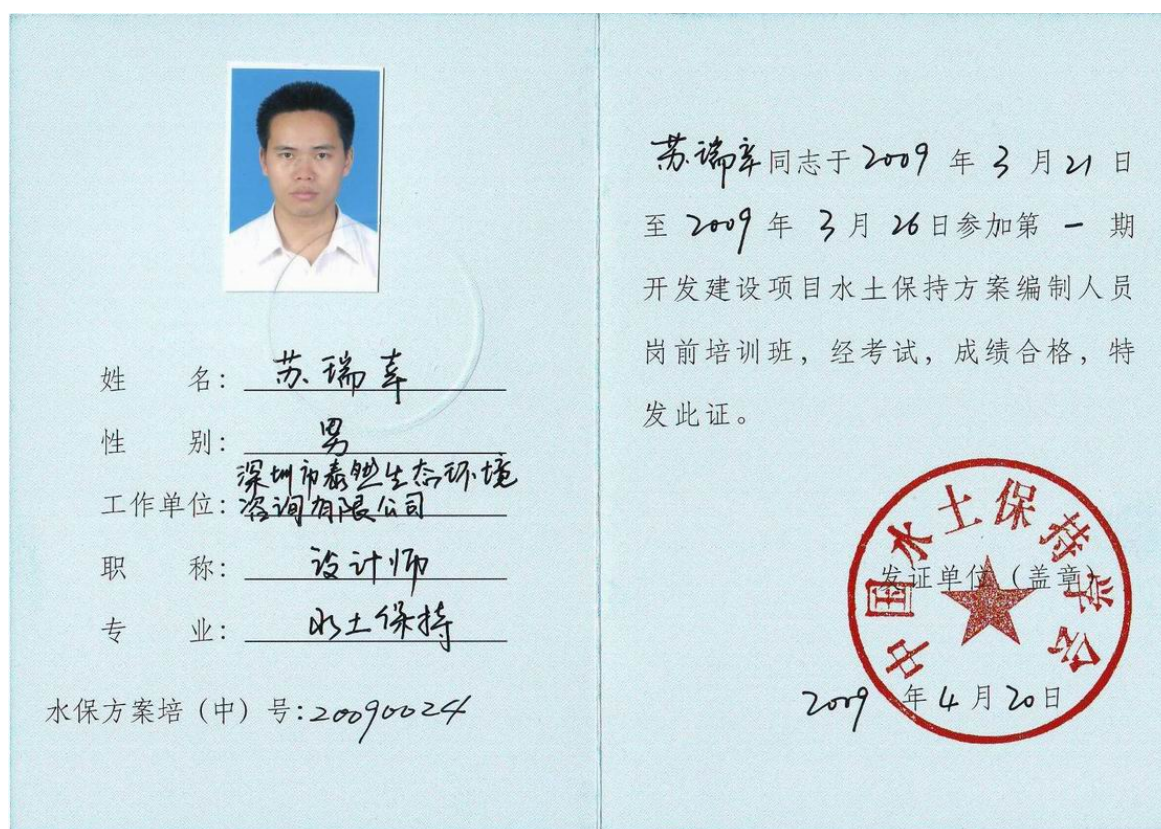 姓 名：苏瑞幸
性 别：男
工作单位：深圳市泰然生态环境
咨询有限公司
职 称：设计师
专 业：水土保持
水保方案培（中）号：20090024
苏瑞幸同志于 2009 年 3 月 21 日
至 2009 年 3 月 26 日参加第 一 期
开发建设项目水土保持方案编制人员
岗前培训班，经考试，成绩合格，特
发此证。
中国水土保持学会
发证单位（盖章）
2009 年 4 月 20 日